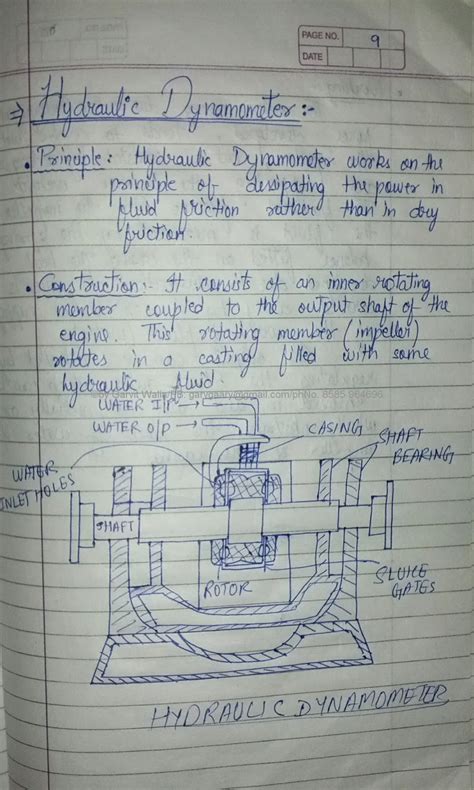 PAGE NO. 9
DATE
⇒ Hydraulic Dynamometer :-
• Principle : Hydraulic Dynamometer works on the
principle of dessipating the power in
fluid friction rather than in dry
friction.
• Construction :- It consists of an inner rotating
member coupled to the output shaft of the
engine. This rotating member (impeller)
rotates in a casting filled with some
hydraulic fluid.
WATER I/P
WATER O/P
CASING
SHAFT
BEARING
WATER
INLET HOLES
SHAFT
ROTOR
SLUICE
GATES
HYDRAULIC DYNAMOMETER